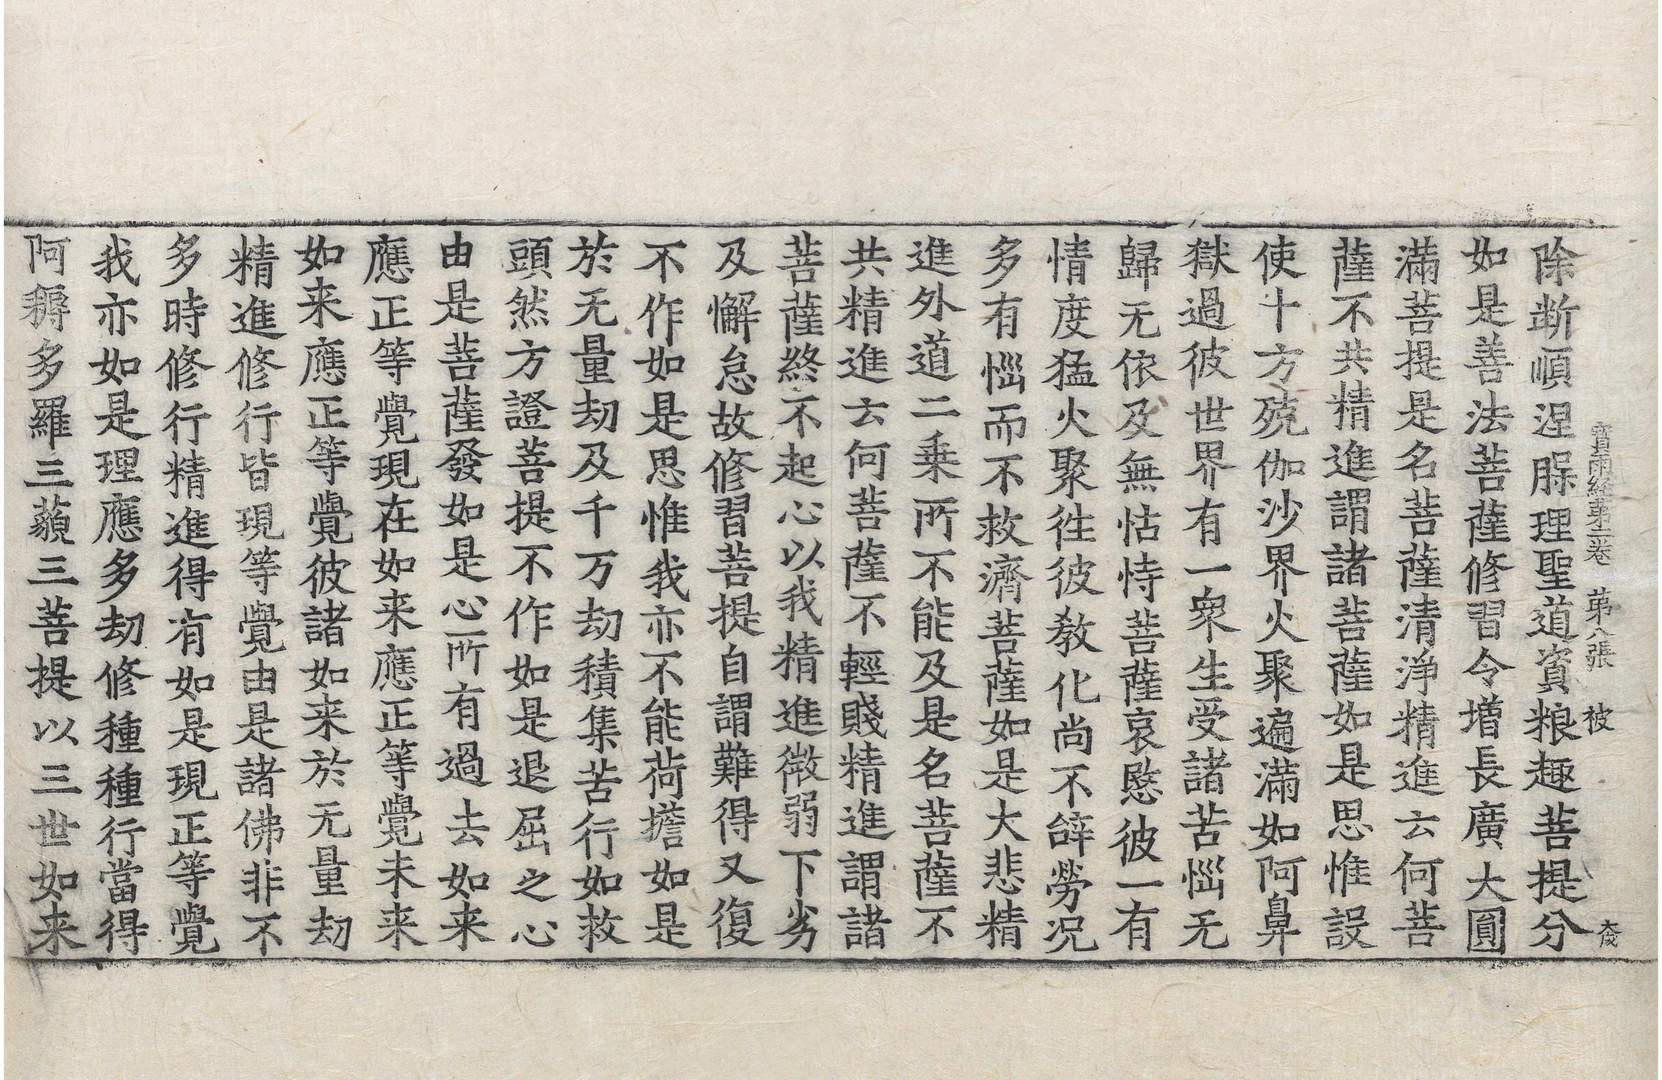 寳雨經第二卷 第八張 被 大成
除断順涅脲理聖道資粮趣菩提分
如是善法菩薩修習令增長廣大圓
滿菩提是名菩薩清淨精進云何菩
薩不共精進謂諸菩薩如是思惟設
使十方殑伽沙界火聚遍滿如阿鼻
獄過彼世界有一衆生受諸苦惱无
歸无依及無怙恃菩薩哀愍彼一有
情度猛火聚徃彼教化尚不辝勞况
多有惱而不救濟菩薩如是大悲精
進外道二乗所不能及是名菩薩不
共精進云何菩薩不輕賤精進謂諸
菩薩終不起心以我精進微弱下劣
及懈怠故修習菩提自謂難得又復
不作如是思惟我亦不能荷擔如是
於无量劫及千万劫積集苦行如救
頭然方證菩提不作如是退屈之心
由是菩薩發如是心所有過去如来
應正等覺現在如来應正等覺未来
如来應正等覺彼諸如来於无量劫
精進修行皆現等覺由是諸佛非不
多時修行精進得有如是現正等覺
我亦如是理應多劫修種種行當得
阿耨多羅三藐三菩提以三世如来